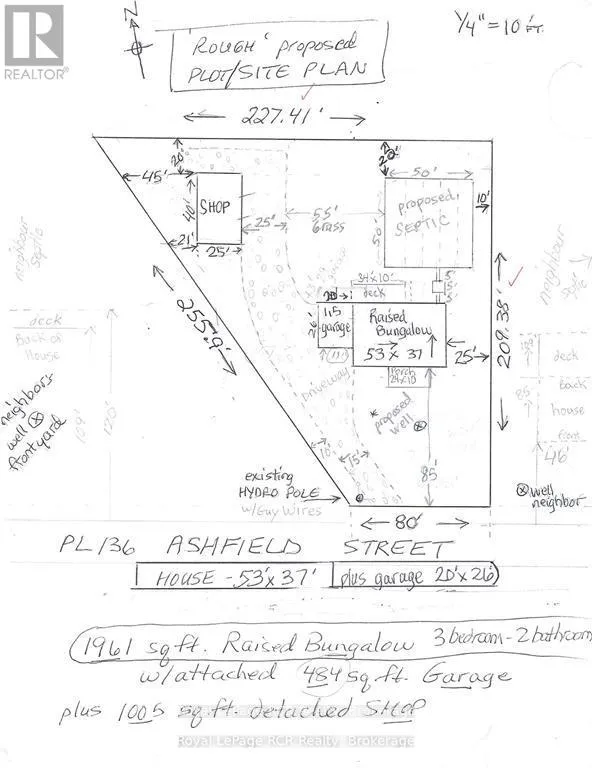 N
1/4" = 10 FT.
'ROUGH' proposed
PLOT/SITE PLAN
REALTOR®
227.41'
20'
20'
45'
40'
SHOP
25'
21'
25'
55'
Grass
50'
50'
proposed
SEPTIC
10'
neighbour
septic
neighbour
septic
34'x10'
deck
5'
5'
5'
20'
26'
115
garage
Raised
Bungalow
53 x 37
25'
209.38'
255.9'
deck
Back of
House
109'
120'
neighbors
well
front yard
Driveway
porch
24x10
* proposed
well
85'
10'
15'
deck
back
house
front
85'
46'
well
neighbor
existing
HYDRO POLE
w/Guy Wires
80'
PL 136 ASHFIELD STREET
HOUSE - 53'x 37' plus garage 20'x 26'
1961 sq ft. Raised Bungalow 3 bedroom - 2 bathroom
w/attached 484 sq ft. Garage
plus 1005 sq ft. detached SHOP
Royal LePage RCR Realty, Brokerage